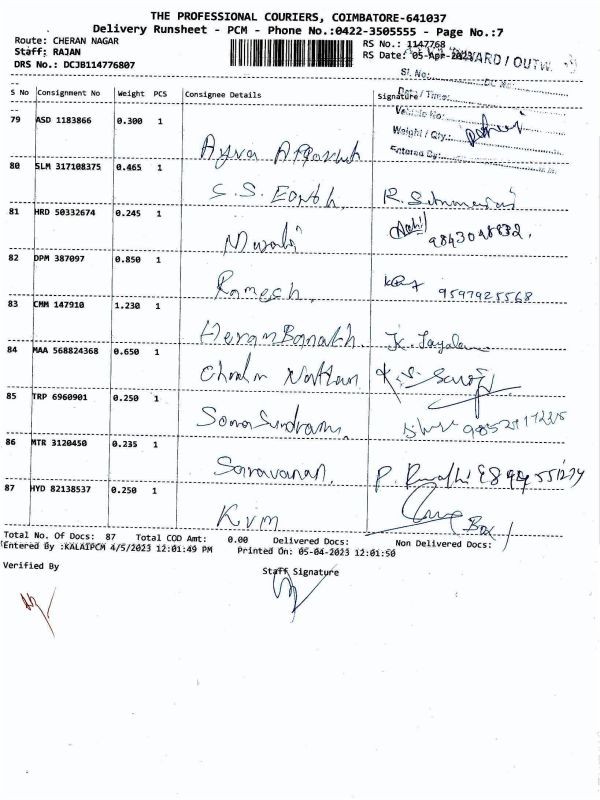 THE PROFESSIONAL COURIERS, COIMBATORE-641037
Delivery Runsheet - PCM - Phone No.:0422-3505555 - Page No.:7
Route: CHERAN NAGAR RS No.: 1147768
Staff: RAJAN RS Date: 05-Apr-2023 WARD / OUTW
DRS No.: DCJB114776807
Sl. No: DC No:
S No Consignment No Weight PCS Consignee Details Signature Date / Time:
Vehicle No:
79 ASD 1183866 0.300 1 Weight / Qty.
Ayra
Entered By:
80 SLM 317108375 0.465 1
S.S. Earth R.
81 HRD 50332674 0.245 1
Murali
82 DPM 387097 0.850 1
Ramesh. 9597925568
83 CMM 147910 1.230 1
K. Jayalam
84 MAA 568824368 0.650 1
Nattan K.S. Saroj
85 TRP 6960901 0.250 1
Soma Sundram.
86 MTR 3120450 0.235 1
Saravanan. P.
87 HYD 82138537 0.250 1
Kvm Box
Total No. Of Docs: 87 Total COD Amt: 0.00 Delivered Docs: Non Delivered Docs:
Entered By :KALAIPCM 4/5/2023 12:01:49 PM Printed On: 05-04-2023 12:01:50
Verified By Staff Signature